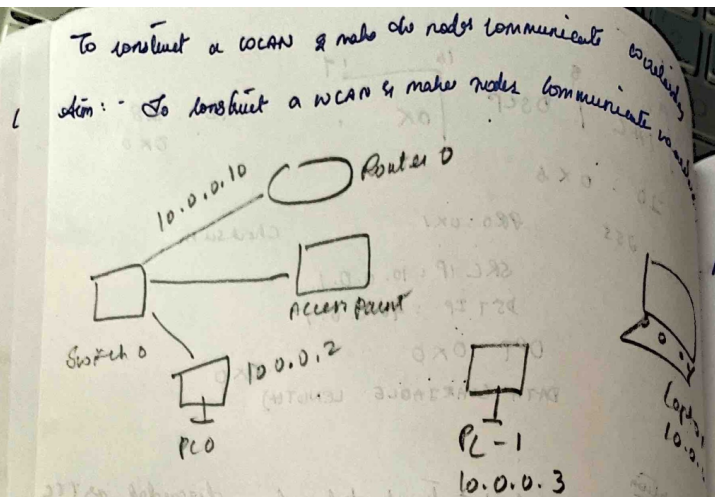 To construct a WLAN & make the nodes communicate wirelessly
Aim: - To construct a WLAN & make nodes communicate
10.0.0.10
Router 0
Access Point
Switch 0
10.0.0.2
PC0
PC-1
10.0.0.3
Laptop
10.0.